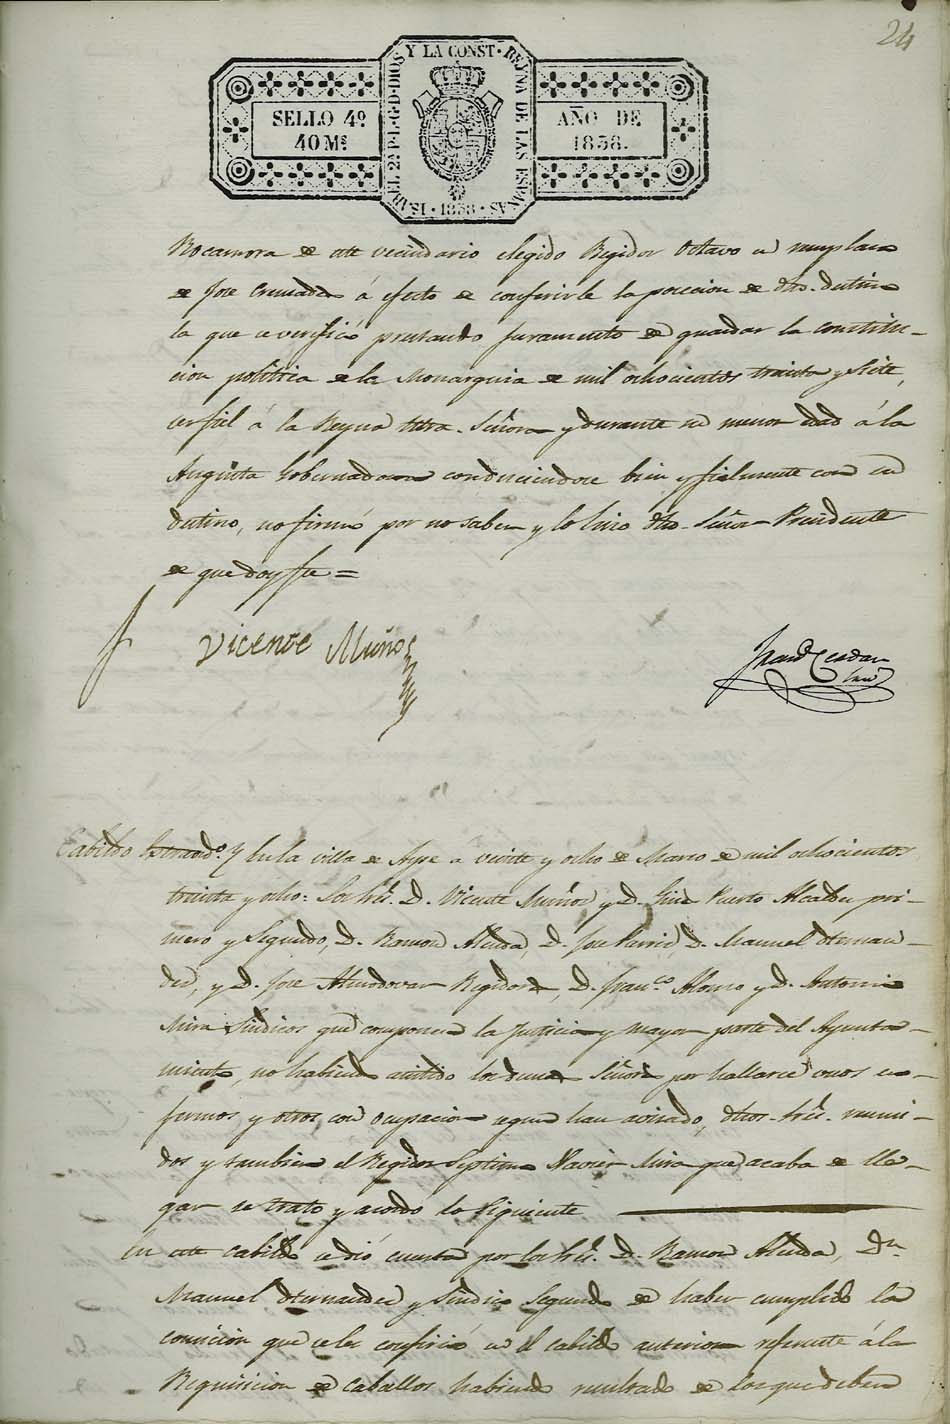 24
ISABEL 2ª P. L. G. D. DIOS Y LA CONST. REYNA DE LAS ESPAÑAS · 1838 ·
SELLO 4º
40 Ms
AÑO DE
1838.
Rocamora de este vecindario elegido Regidor Octavo en
de Jose á efecto de conferirle la posecion de dho. destino
la que se verificó prestando juramento de guardar la constitu-
cion politica de la Monarquia de mil ochocientos treinta y Siete,
ser fiel á la Reyna Ntra. Señora y durante su menor edad á la
Augusta Gobernadora conduciendose bien y fielmente con su
destino, no firmó por no saber y lo hizo dho. Señor Presidente
de que doy fe =
Vicente Muños
Cabildo Estraordo. Y En la villa de Aspe á veinte y ocho de Marzo de mil ochocientos
treinta y ocho: Los Sres. D. Vicente Muñoz y D. Puerto Alcaldes pri-
mero y Segundo, D. Ramon Alcida, D. Jose D. Manuel Hernan-
dez, y D. Jose Almodovar Regidores, D. Franco. Alonso y D. Antonio
Mira Sindicos que componen la Justicia y mayor parte del Ayunta-
miento, no habiendo asistido los demas Señores por hallarse unos en-
fermos y otros con ocupacion aquen han avisado, dhos. Sres. reuni-
dos y tambien el Regidor Septimo Xavier Mira que acaba de lle-
gar se trato y acordo lo Siguiente
En este cabildo se dió cuenta por los Sres. D. Ramon Alcida, Dn.
Manuel Hernandez y Sindico Segundo de haber cumplido la
comision que se les confirió en el cabildo anterior referente á la
Requisicion de Caballos habiendo resultado de los que deben